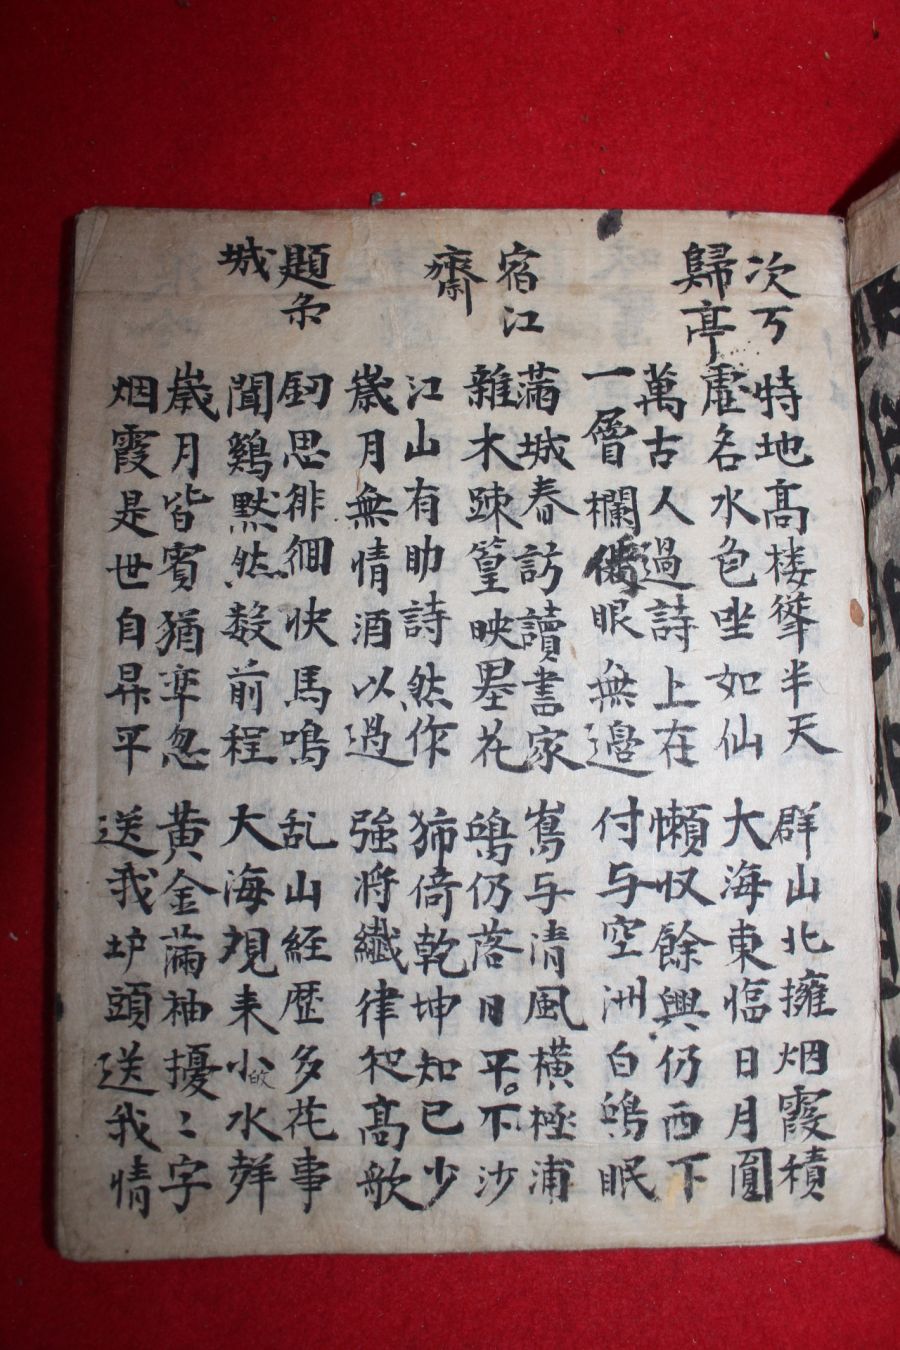 次丂
歸亭
特地高楼聳半天 群山北擁烟霞積
虛名水色坐如仙 大海東临日月圓
萬古人過詩上在 懶収餘興仍西下
一層欄 眼無邉 付与空洲白鷗眠
宿江
齋
滿城春訪讀書家 嶌与清風橫極浦
雜木踈篁映墨花 鳴仍落日平不沙
江山有助詩然作 猗倚乾坤知已少
歲月無情酒以過 強將纖律和高歌
題
城
釰思徘徊快馬鳴 乱山経歷多花事
聞鷄默然数前程 大海規来小水觧
歲月皆賓猶率忽 黄金滿袖擾〻字
烟霞是世自昇平 送我炉頭送我情